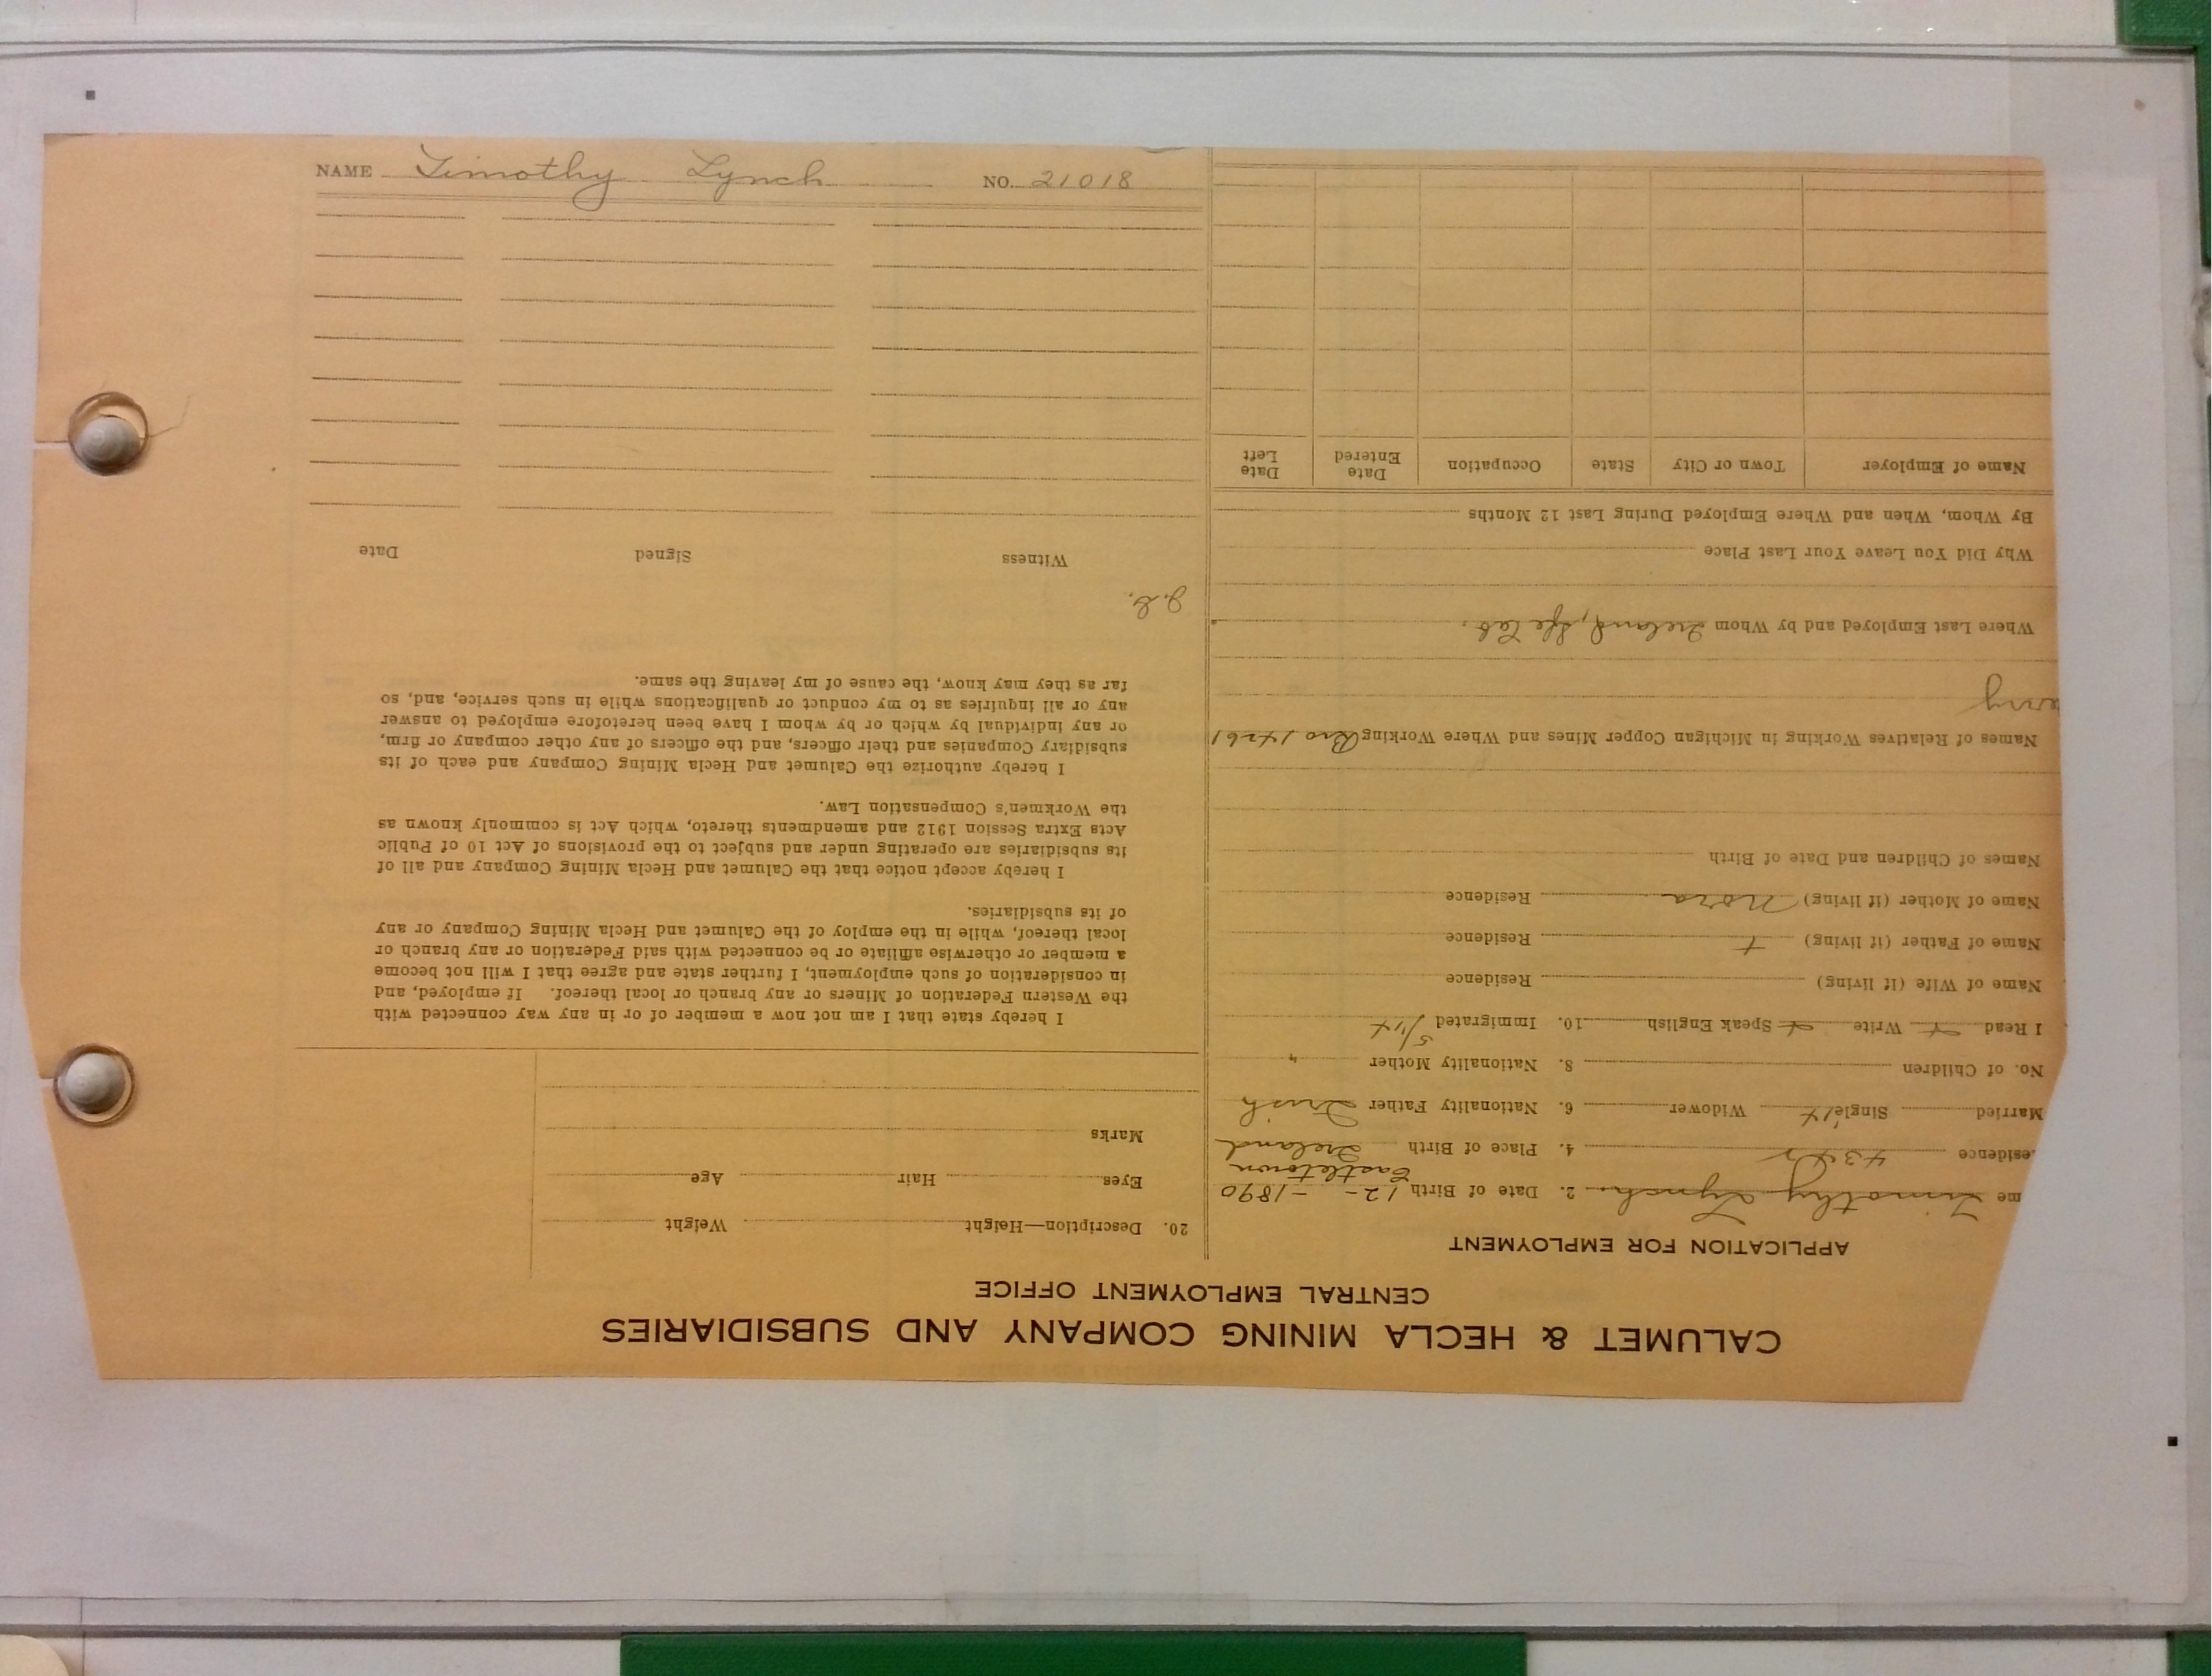 CALUMET & HECLA MINING COMPANY AND SUBSIDIARIES
CENTRAL EMPLOYMENT OFFICE
APPLICATION FOR EMPLOYMENT
me Timothy Lynch. 2. Date of Birth 12- - 1890
Castletown
esidence 4. Place of Birth Ireland
Married Single Widower 6. Nationality Father Irish
No. of Children 8. Nationality Mother "
I Read Write Speak English 10. Immigrated 5/14
Name of Wife (if living) Residence
Name of Father (if living) Residence
Name of Mother (if living) Nora Residence
Names of Children and Date of Birth
Names of Relatives Working in Michigan Copper Mines and Where Working Bro
Where Last Employed and by Whom Ireland,
Why Did You Leave Your Last Place
By Whom, When and Where Employed During Last 12 Months
Name of Employer Town or City State Occupation Date Entered Date Left
20. Description—Height Weight
Eyes Hair Age
Marks
I hereby state that I am not now a member of or in any way connected with
the Western Federation of Miners or any branch or local thereof. If employed, and
in consideration of such employment, I further state and agree that I will not become
a member or otherwise affiliate or be connected with said Federation or any branch or
local thereof, while in the employ of the Calumet and Hecla Mining Company or any
of its subsidiaries.
I hereby accept notice that the Calumet and Hecla Mining Company and all of
its subsidiaries are operating under and subject to the provisions of Act 10 of Public
Acts Extra Session 1912 and amendments thereto, which Act is commonly known as
the Workmen's Compensation Law.
I hereby authorize the Calumet and Hecla Mining Company and each of its
subsidiary Companies and their officers, and the officers of any other company or firm,
or any individual by which or by whom I have been heretofore employed to answer
any or all inquiries as to my conduct or qualifications while in such service, and, so
far as they may know, the cause of my leaving the same.
Witness Signed Date
NAME Timothy Lynch NO. 21018